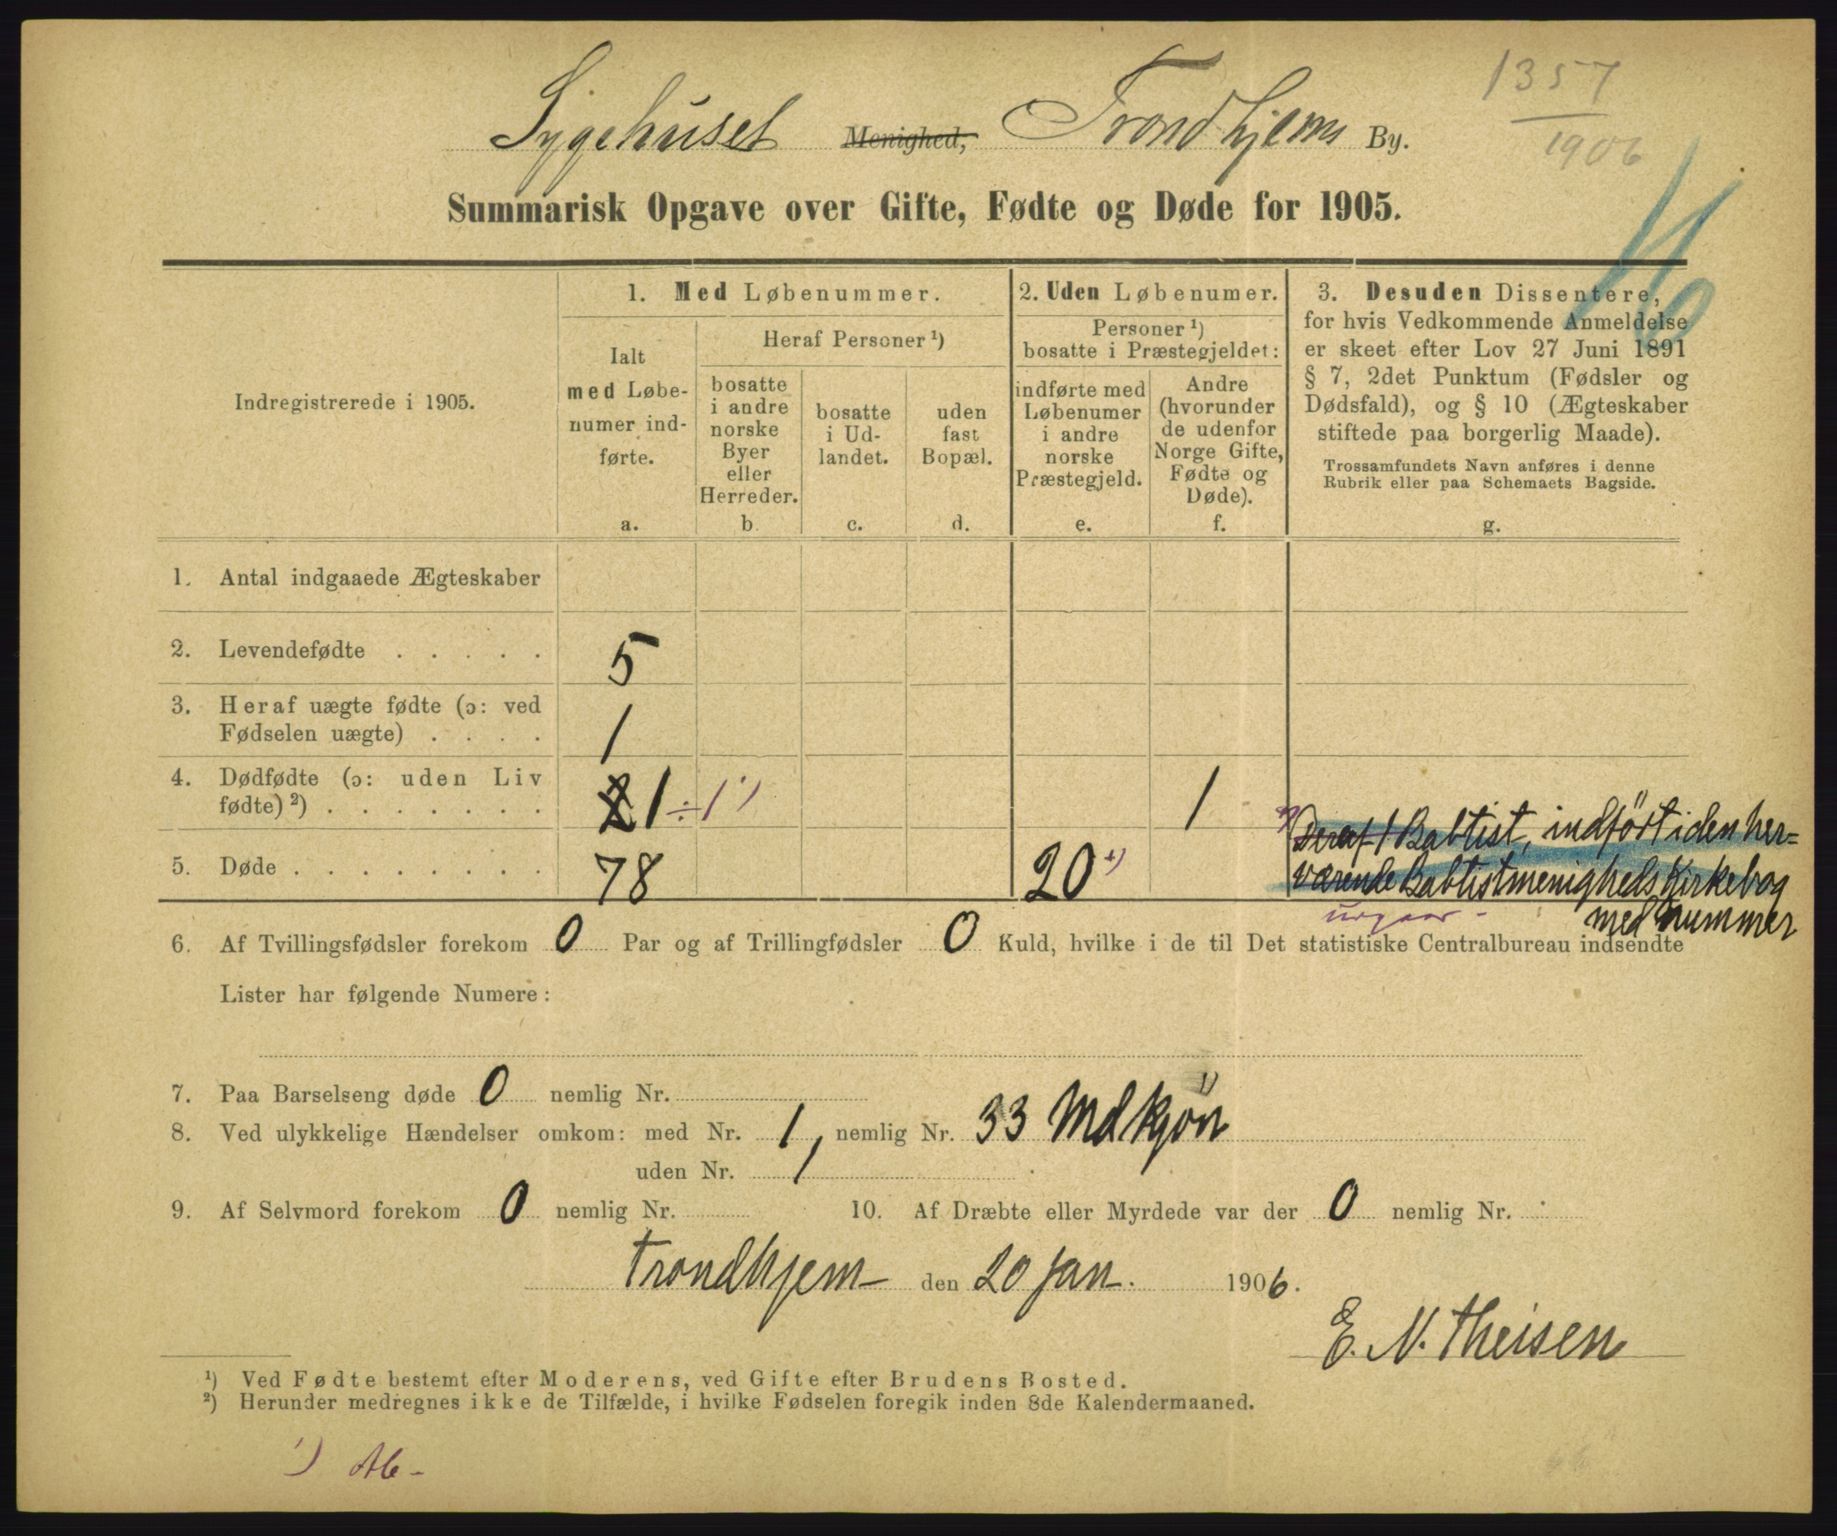 Sygehuset Menighed, Trondhjems By.
1357
1906
Summarisk Opgave over Gifte, Fødte og Døde for 1905.
Indregistrerede i 1905.
1. Med Løbenummer.
Ialt
med Løbe-
numer ind-
førte.
a.
Heraf Personer ¹)
bosatte
i andre
norske
Byer
eller
Herreder.
b
bosatte
i Ud-
landet.
c.
uden
fast
Bopæl.
d.
2. Uden Løbenumer.
Personer ¹)
bosatte i Præstegjeldet:
indførte med
Løbenumer
i andre
norske
Præstegjeld.
e.
Andre
(hvorunder
de udenfor
Norge Gifte,
Fødte og
Døde).
f.
3. Desuden Dissentere,
for hvis Vedkommende Anmeldelse
er skeet efter Lov 27 Juni 1891
§ 7, 2det Punktum (Fødsler og
Dødsfald), og § 10 (Ægteskaber
stiftede paa borgerlig Maade).
Trossamfundets Navn anføres i denne
Rubrik eller paa Schemaets Bagside.
g.
1. Antal indgaaede Ægteskaber
2. Levendefødte . . . . . 5
3. Heraf uægte fødte (ɔ: ved
Fødselen uægte) . . . . 1
4. Dødfødte (ɔ: uden Liv
fødte) ²) . . . . . . . 1 ÷ 1 ¹) 1
5. Døde . . . . . . . . 78 20 ⁺)
Deraf 1 Babtist, indført i den her=
værende Babtistmenigheds Kirkebog
med Nummer
urgaar -
6. Af Tvillingsfødsler forekom 0 Par og af Trillingfødsler 0 Kuld, hvilke i de til Det statistiske Centralbureau indsendte
Lister har følgende Numere:
7. Paa Barselseng døde 0 nemlig Nr.
8. Ved ulykkelige Hændelser omkom: med Nr. 1, nemlig Nr. 33 Mdkjøn
uden Nr. 1
9. Af Selvmord forekom 0 nemlig Nr. 10. Af Dræbte eller Myrdede var der 0 nemlig Nr.
Trondhjem den 20 Jan. 1906.
E. N. Theisen
¹) Ved Fødte bestemt efter Moderens, ved Gifte efter Brudens Bosted.
²) Herunder medregnes ikke de Tilfælde, i hvilke Fødselen foregik inden 8de Kalendermaaned.
¹) Ab-